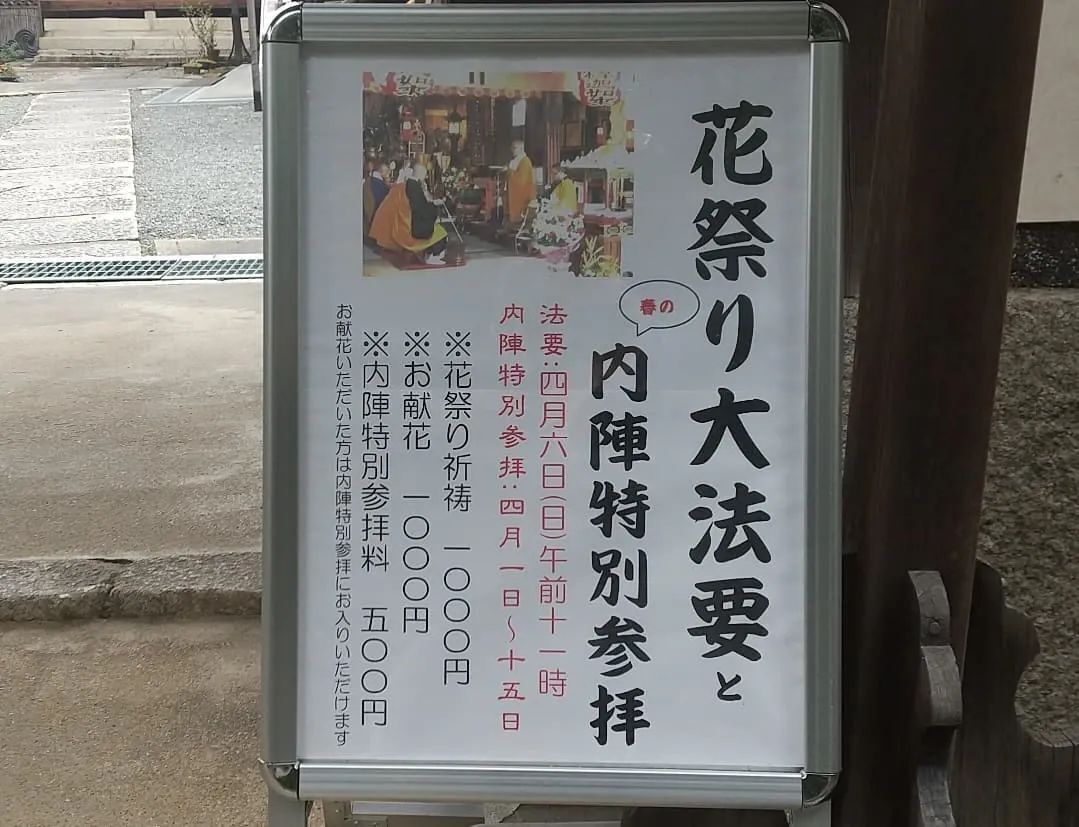 花祭り大法要と
春の
内陣特別参拝
法要:四月六日(日)午前十一時
内陣特別参拝:四月一日～十五日
※花祭り祈祷 一〇〇〇円
※お献花 一〇〇〇円
※内陣特別参拝料 五〇〇円
お献花いただいた方は内陣特別参拝にお入りいただけます